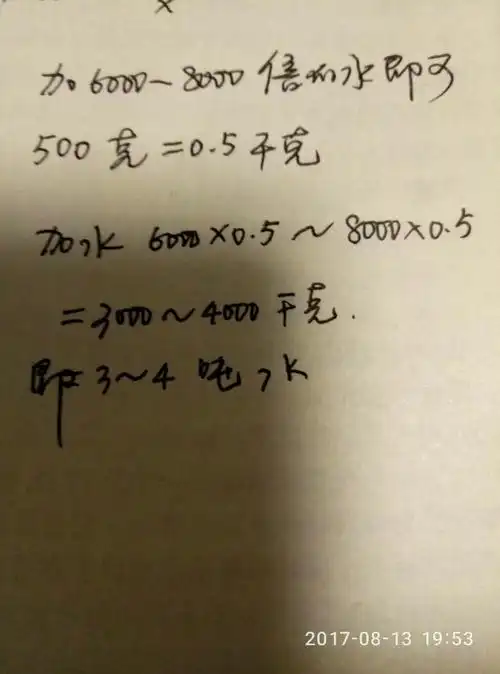 加6000~8000倍的水即可
500克=0.5千克
加水 6000×0.5~8000×0.5
=3000~4000千克.
即3~4吨水
2017-08-13 19:53